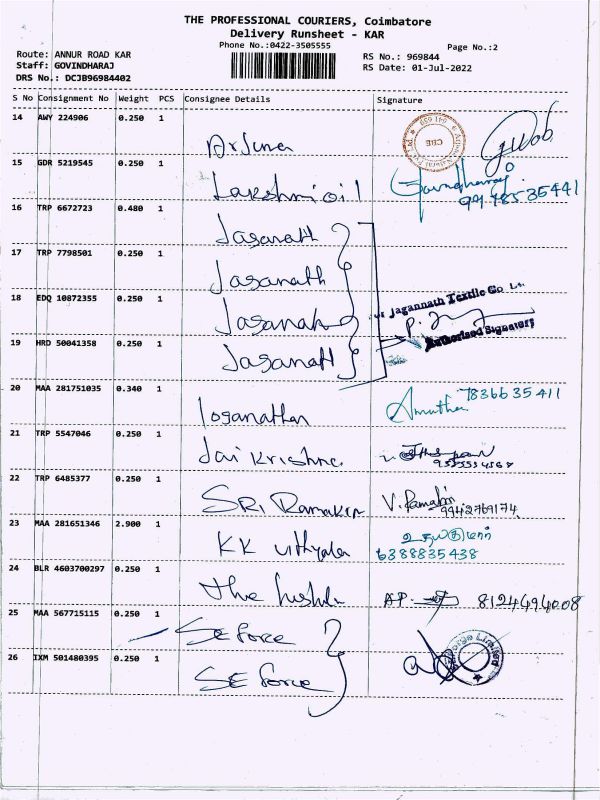 THE PROFESSIONAL COURIERS, Coimbatore
Delivery Runsheet - KAR
Phone No.:0422-3505555
Page No.:2
Route: ANNUR ROAD KAR
Staff: GOVINDHARAJ
DRS No.: DCJB96984402
RS No.: 969844
RS Date: 01-Jul-2022
S No Consignment No Weight PCS Consignee Details Signature
14 AWY 224906 0.250 1 Arjuna
641 659 CBE
15 GDR 5219545 0.250 1 Lakshmi oil Govindharaj
16 TRP 6672723 0.480 1 Jaganath
17 TRP 7798501 0.250 1 Jaganath
18 EDQ 10872355 0.250 1 Jaganath
For Jagannath Textile Co
Authorised Signatory
19 HRD 50041358 0.250 1 Jaganath
20 MAA 281751035 0.340 1 Loganathan Amutha 7836635411
21 TRP 5547046 0.250 1 Jai Krishna
22 TRP 6485377 0.250 1 SRI Ramakrn V. Ramalin 9942769174
23 MAA 281651346 2.900 1 KK vithyala உதயகுமார்
6388835438
24 BLR 4603700297 0.250 1 the A.P. 8124494008
25 MAA 567715115 0.250 1 SE force
26 IXM 501480395 0.250 1 SE force
SE Forge Limited